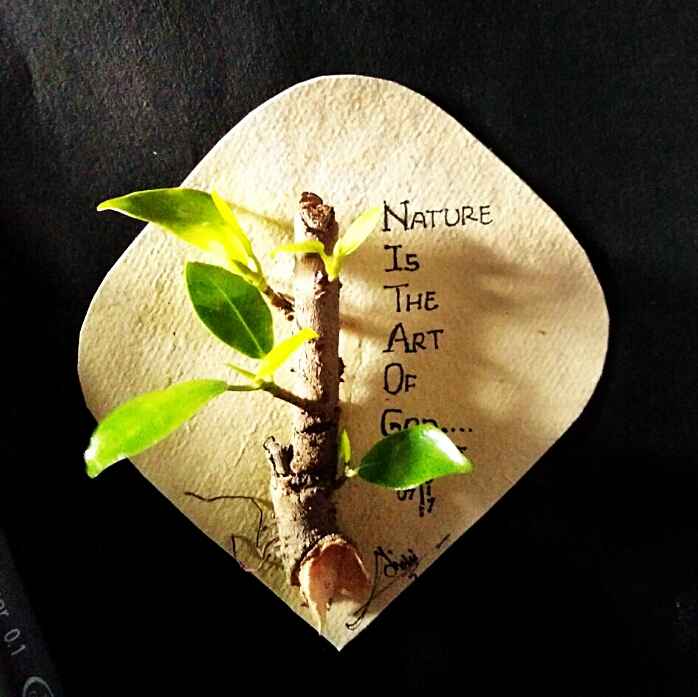 NATURE
IS
THE
ART
OF
GOD....
17
0.1